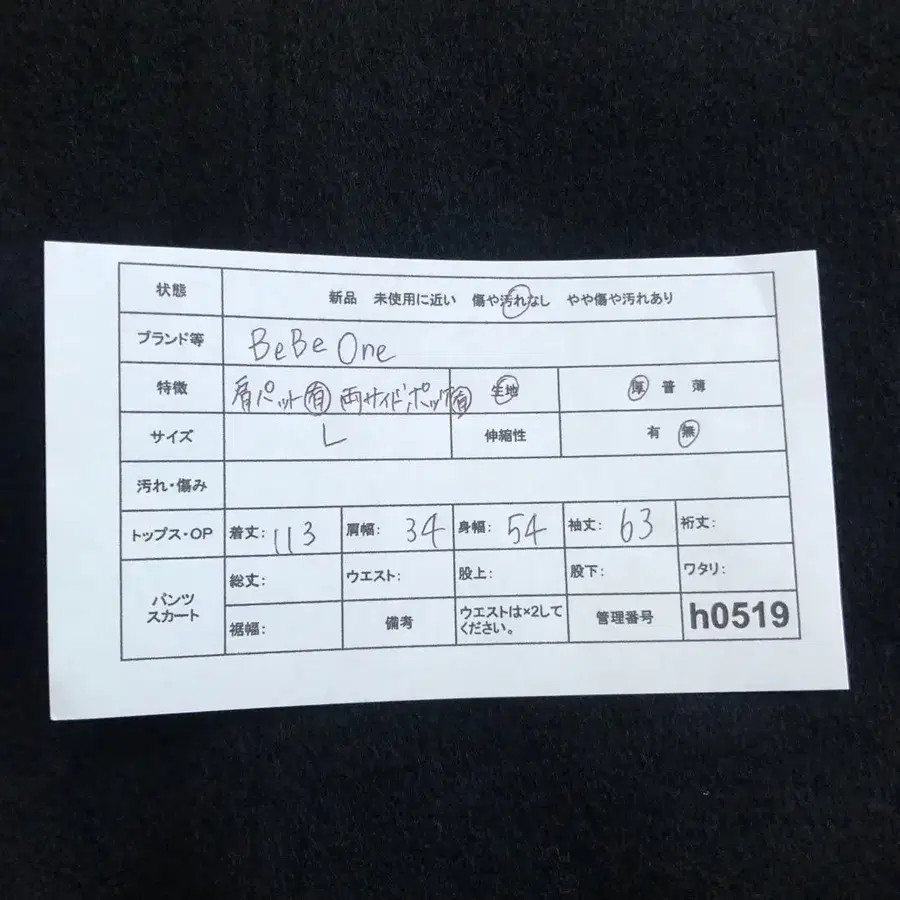 状態 新品 未使用に近い 傷や汚れなし やや傷や汚れあり
ブランド等 BeBe One
特徴 肩パット有 両サイドポッケ有 生地 厚 普 薄
サイズ L 伸縮性 有 無
汚れ・傷み
トップス・OP 着丈: 113 肩幅: 34 身幅: 54 袖丈: 63 裄丈:
パンツ スカート 総丈: ウエスト: 股上: 股下: ワタリ:
裾幅: 備考 ウエストは×2して
ください。 管理番号 h0519